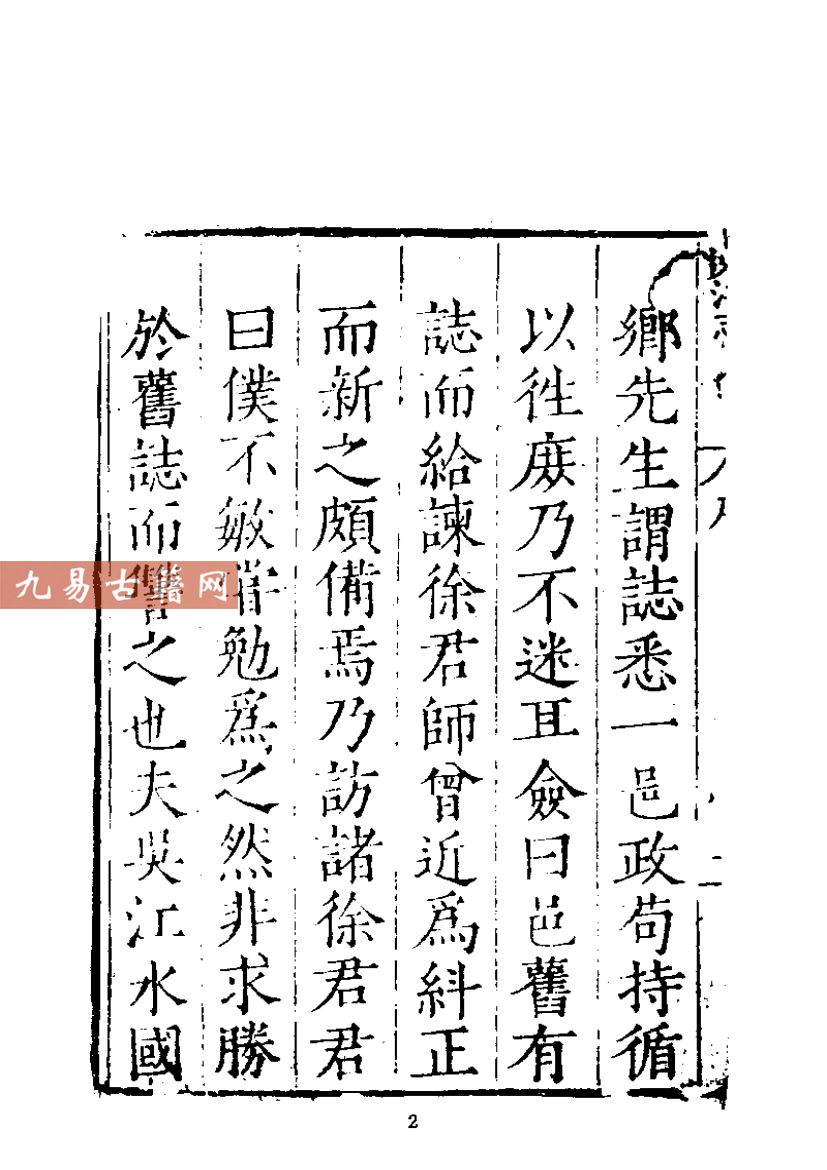 鄉先生謂誌悉一邑政茍持循
以徃庶乃不迷耳僉曰邑舊有
誌而給諫徐君師曾近爲糾正
而新之頗備焉乃訪諸徐君君
曰僕不敏嘗勉爲之然非求勝
於舊誌而讐之也夫吳江水國
九易古籍网
2